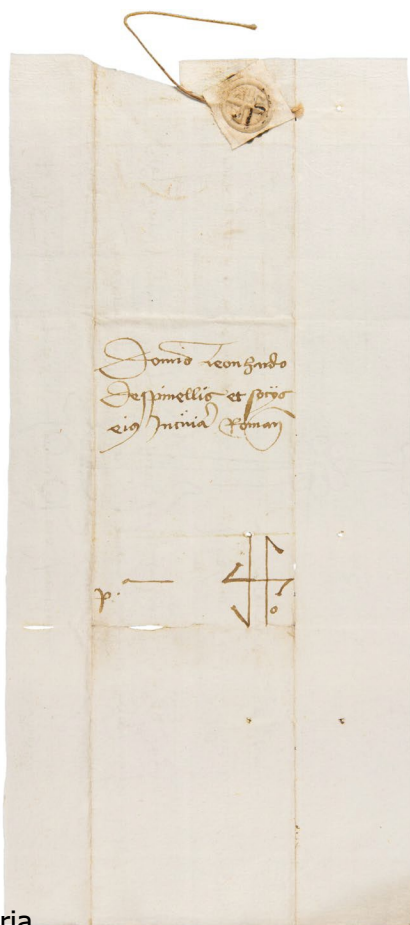 Domino leonhardo
despinellis et socijs
eius In curia Roman
p.
ria